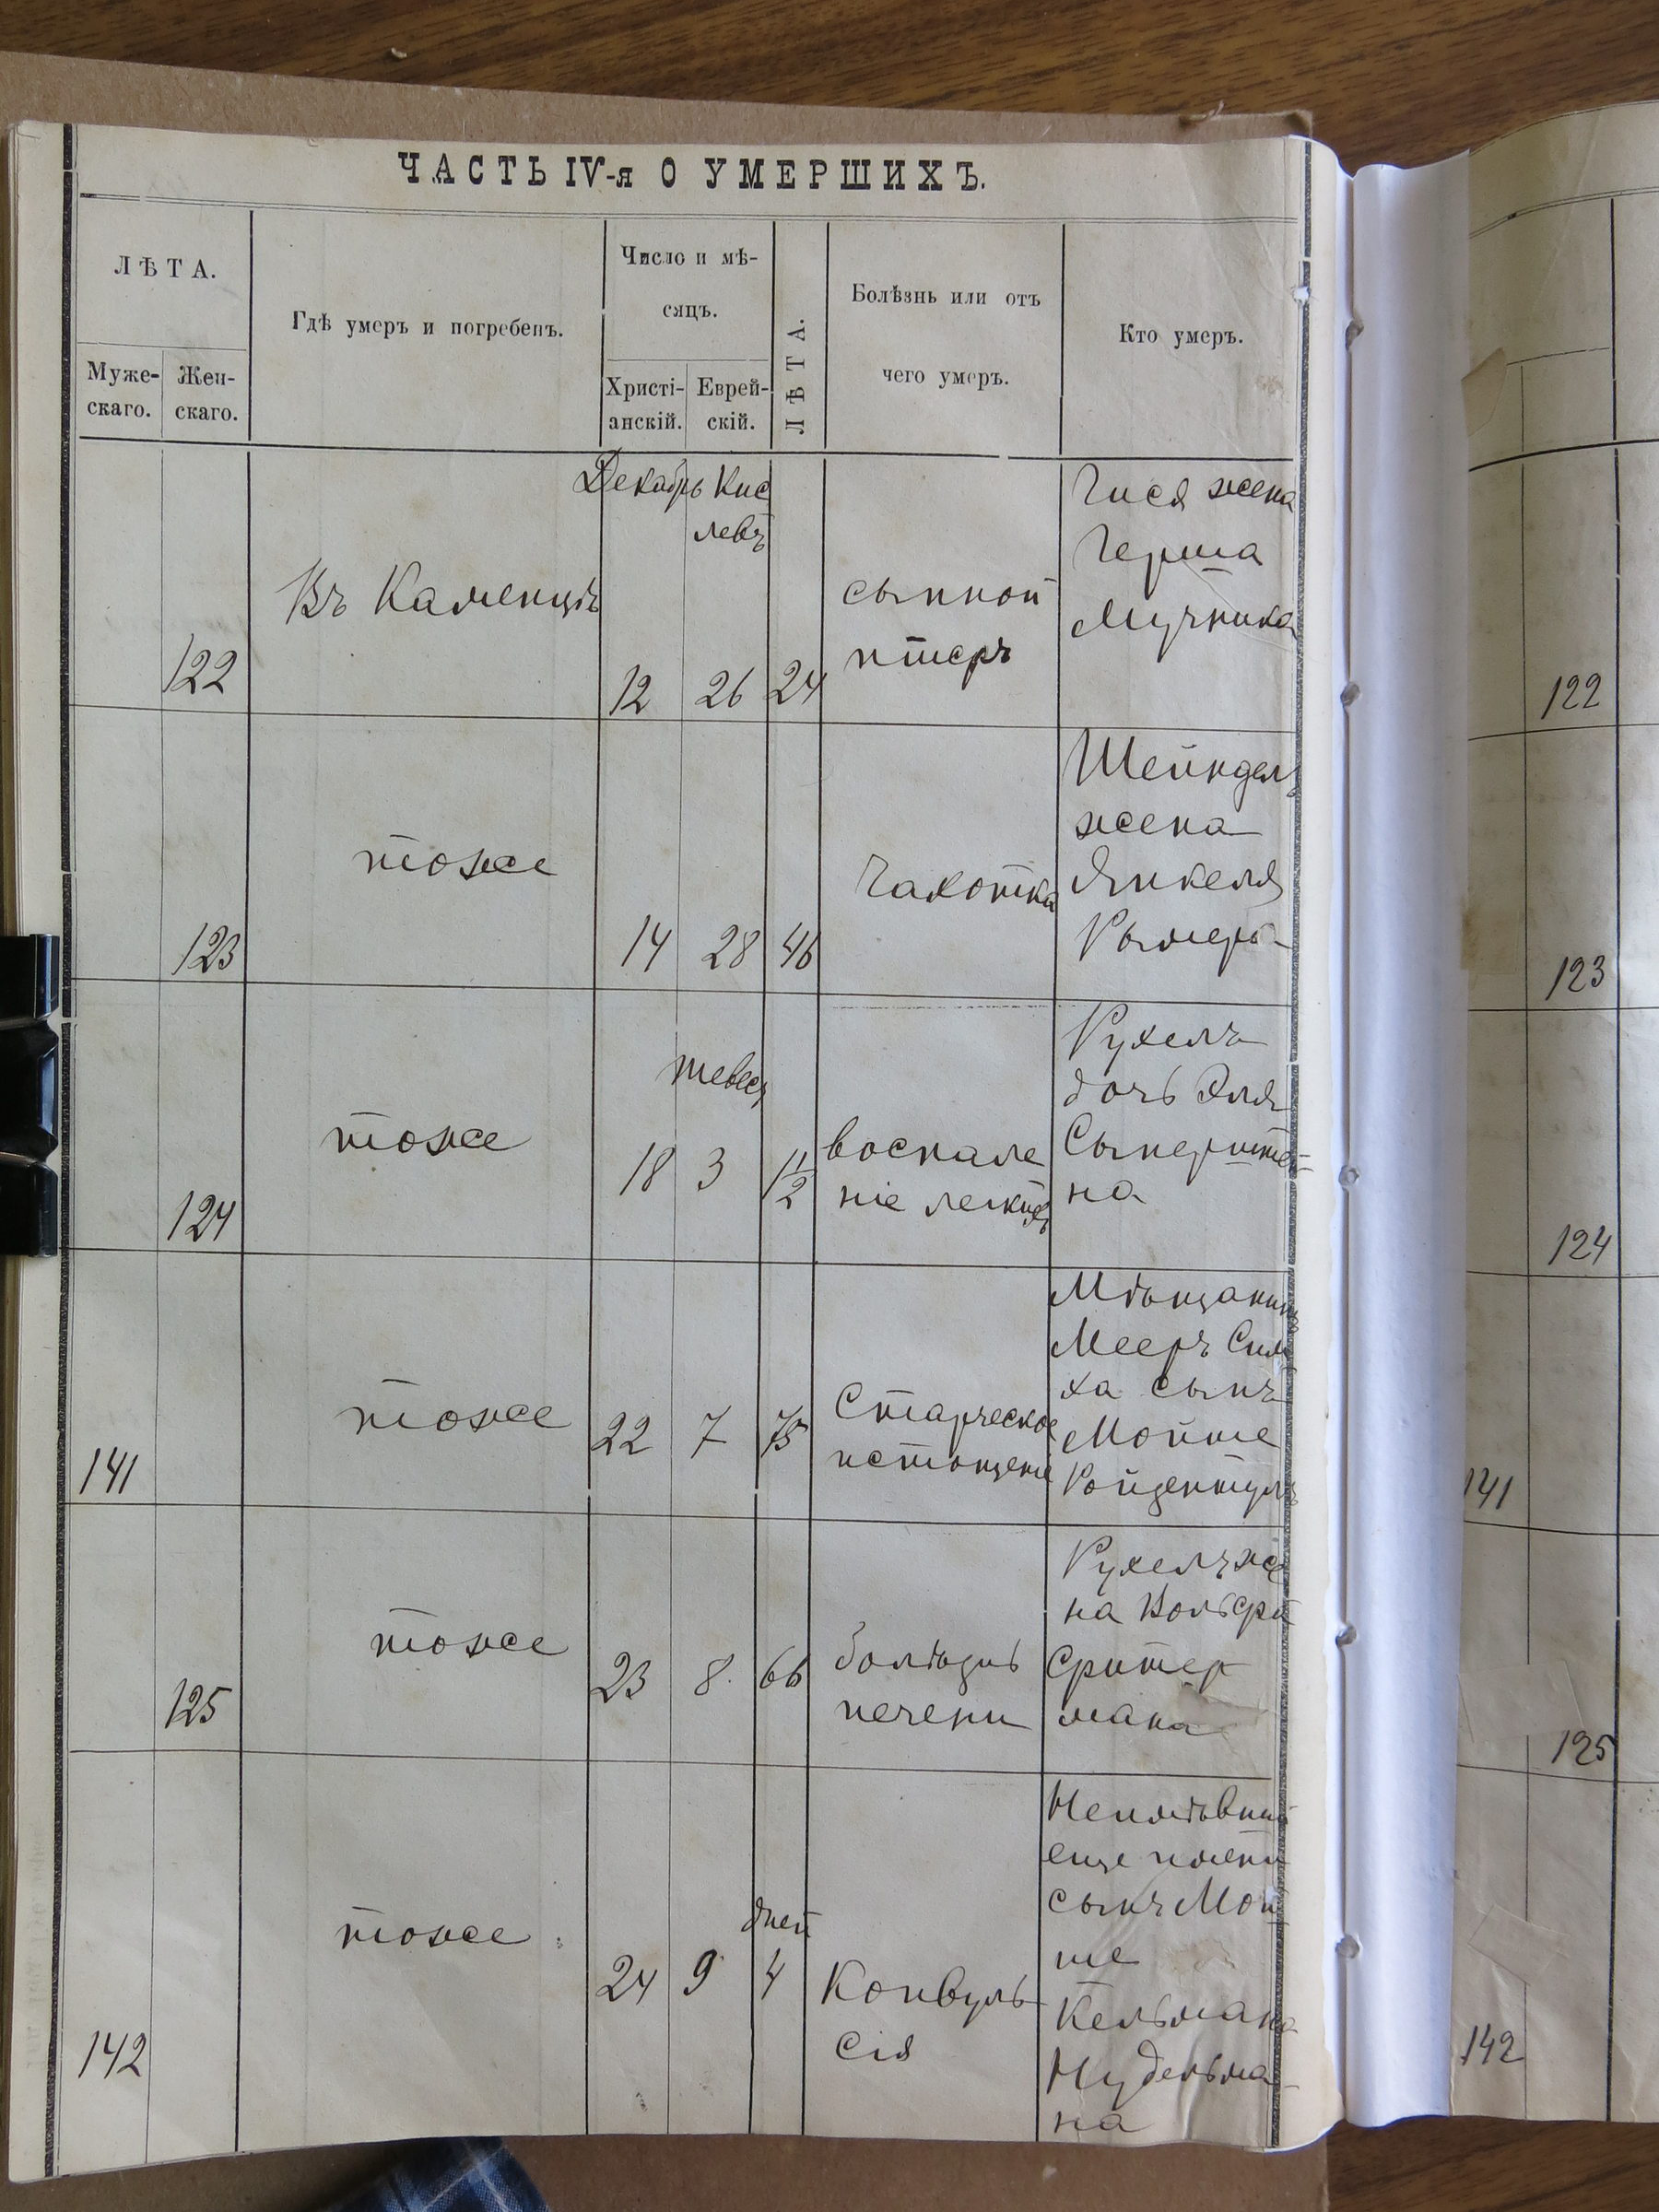 ЧАСТЬ IV-я О УМЕРШИХЪ.
ЛѢТА.
Муже-
скаго.
Жен-
скаго.
Гдѣ умеръ и погребенъ.
Число и мѣ-
сяцъ.
Христі-
анскій.
Еврей-
скій.
ЛѢТА.
Болѣзнь или отъ
чего умеръ.
Кто умеръ.
122
Въ Каменцѣ
Декабрь
12
Кис
левъ
26
24
сыпной
Гися жена
Герша
Мучника
123
тоже
14
28
46
чахотка
Шейндель
жена
Янкеля
Ромера
124
тоже
18
Тевес
3
1 1/2
воспале
ніе легкихъ
Рухель
дочь Эля
на
141
тоже
22
7
75
Старческое
истощеніе
Мѣщанинъ
Мееръ Сим
ха сынъ
Мойше
Ройзентуль
125
тоже
23
8.
66
болѣзнь
печени
Рухель же
на Вольфа
Фритер
мана
142
тоже
24
9
дней
4
Конвуль
сія
Неимѣвшій
еще имени
сынъ Мой
ше
Кельмана
Нудельма-
на
122
123
124
141
125
142